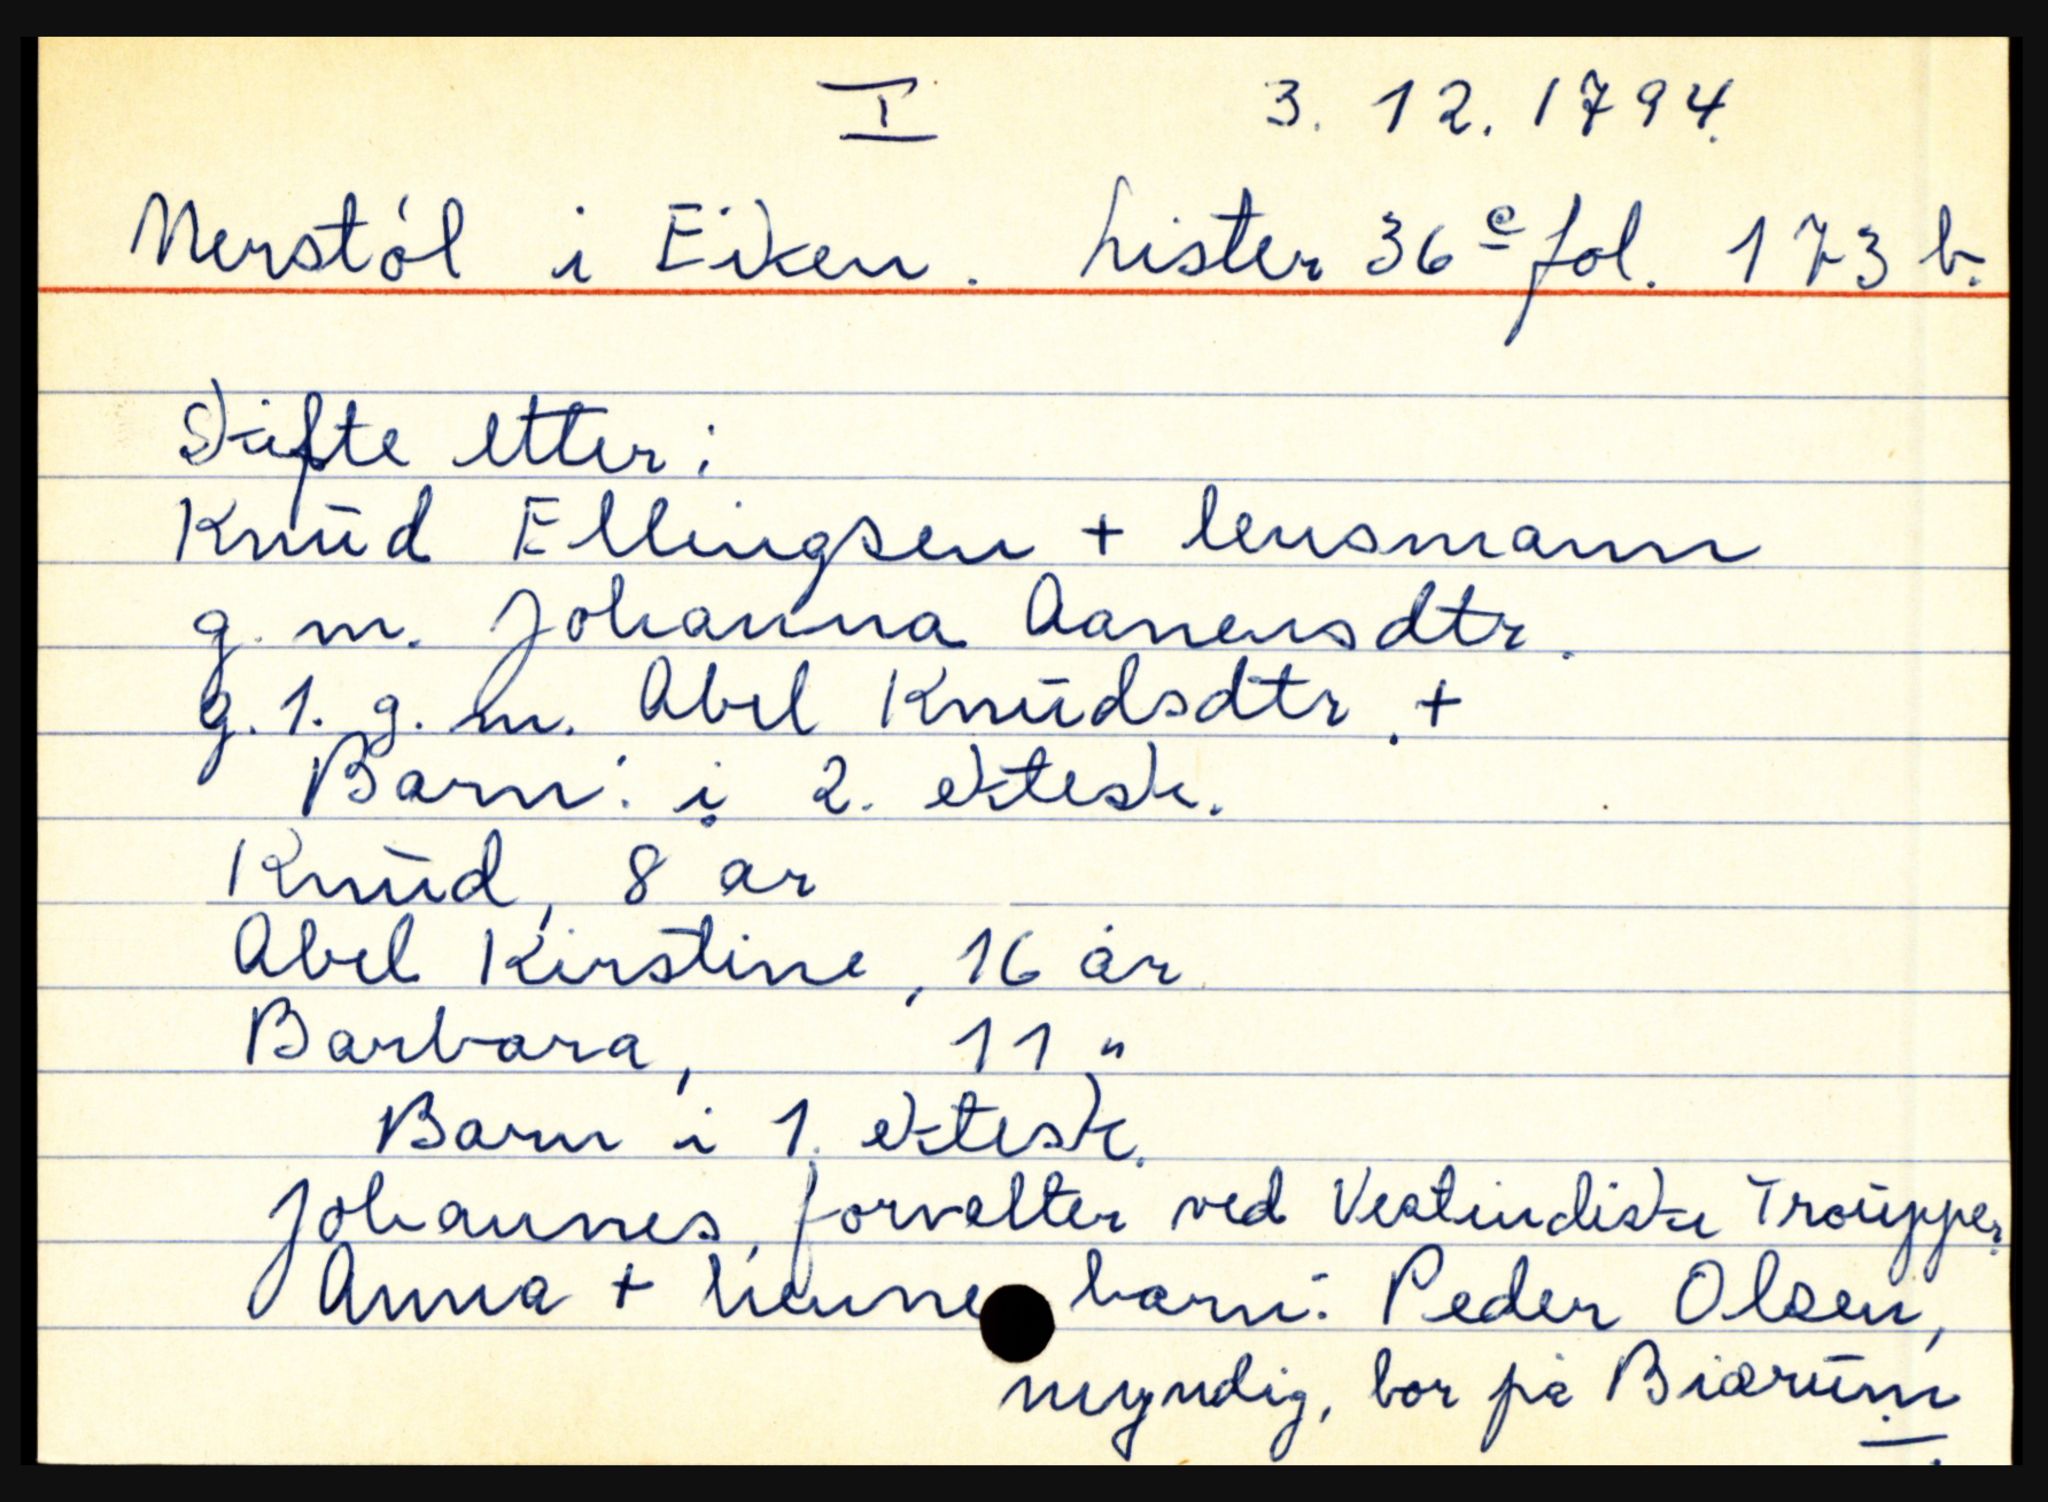 I 3. 12. 1794.
Nerstól i Eiken. Lister 36 c fol. 173 b.
Skifte etter:
Knud Ellingsen + lensmann
g. m. Johanna Aanensdtr.
g. 1. g. m. Abel Knudsdtr. +
Barn: i 2. ektesk.
Knud, 8 år
Abel Kirstine, 16 år
Barbara, 11 "
Barn i 1. ektesk.
Johannes, forvalter ved Vestindiske Troupper.
Anna + hennes barn: Peder Olsen,
myndig, bor på Biærum